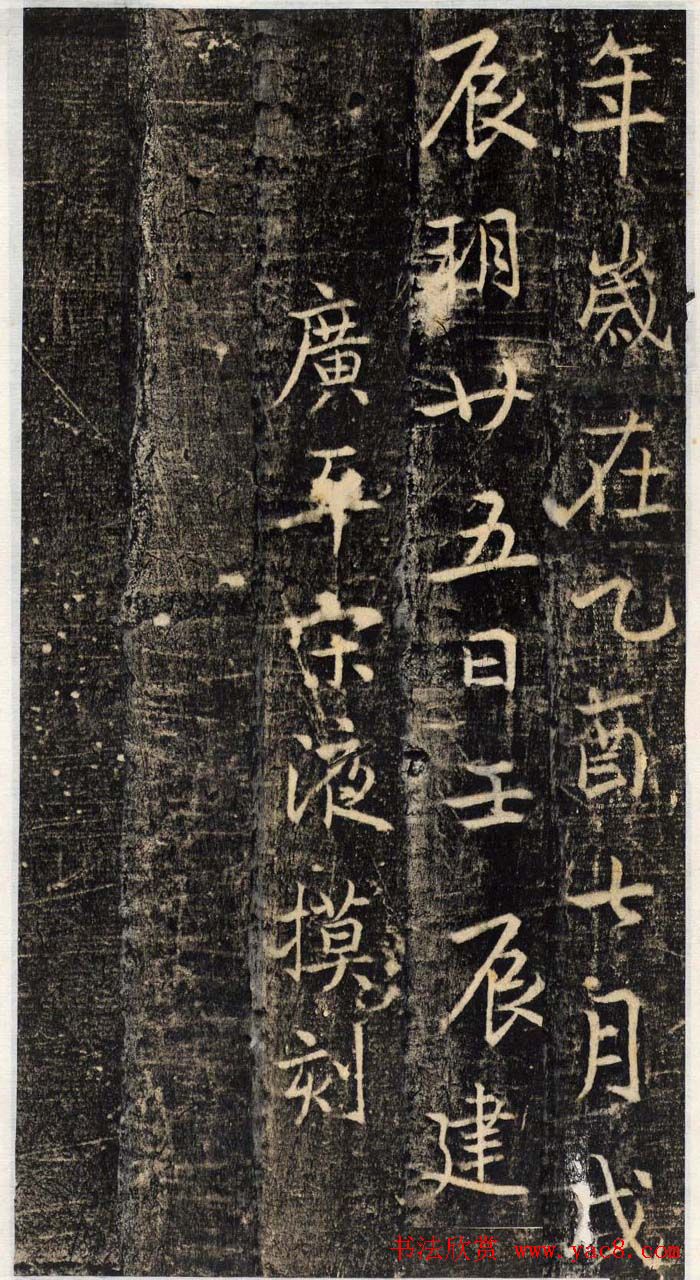 年歲在乙酉七月戊
辰朔廿五日壬辰建
廣平宋液摸刻
书法欣赏 www.yac8.com